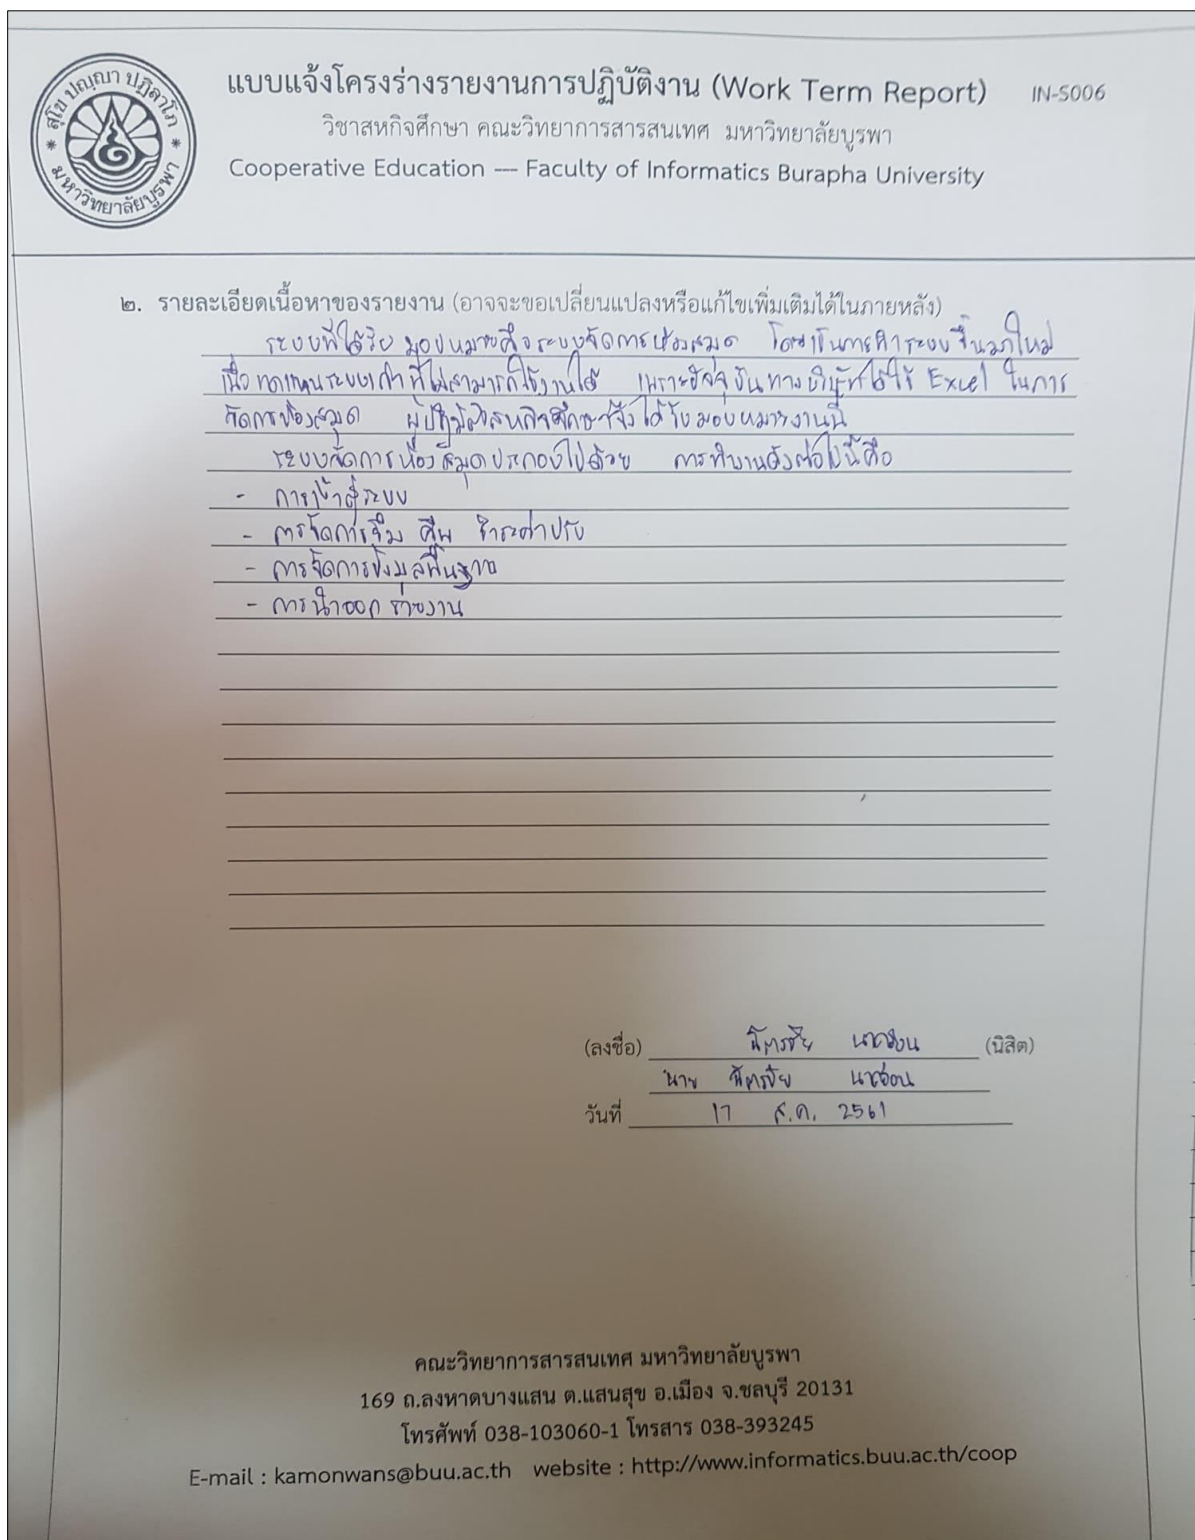 สุโข ปญฺญา ปฏิลาโภ
มหาวิทยาลัยบูรพา
แบบแจ้งโครงร่างรายงานการปฏิบัติงาน (Work Term Report) IN-S006
วิชาสหกิจศึกษา คณะวิทยาการสารสนเทศ มหาวิทยาลัยบูรพา
Cooperative Education –– Faculty of Informatics Burapha University
๒. รายละเอียดเนื้อหาของรายงาน (อาจจะขอเปลี่ยนแปลงหรือแก้ไขเพิ่มเติมได้ในภายหลัง)
ระบบที่ได้รับมอบหมายคือระบบจัดการห้องสมุด โดยเป็นการทำระบบขึ้นมาใหม่
เพื่อทดแทนระบบเก่าที่ไม่สามารถใช้งานได้ เพราะปัจจุบันทางบริษัทได้ใช้ Excel ในการ
จัดการห้องสมุด ผู้ปฏิบัติสหกิจศึกษาจึงได้รับมอบหมายงานนี้
ระบบจัดการห้องสมุดประกอบไปด้วย การทำงานดังต่อไปนี้คือ
- การเข้าสู่ระบบ
- การจัดการยืม คืน ชำระค่าปรับ
- การจัดการข้อมูลพื้นฐาน
- การนำออก รายงาน
(ลงชื่อ) ฉัตรชัย (นิสิต)
นาย ฉัตรชัย
วันที่ 17 ส.ค. 2561
คณะวิทยาการสารสนเทศ มหาวิทยาลัยบูรพา
169 ถ.ลงหาดบางแสน ต.แสนสุข อ.เมือง จ.ชลบุรี 20131
โทรศัพท์ 038-103060-1 โทรสาร 038-393245
E-mail : kamonwans@buu.ac.th website : http://www.informatics.buu.ac.th/coop